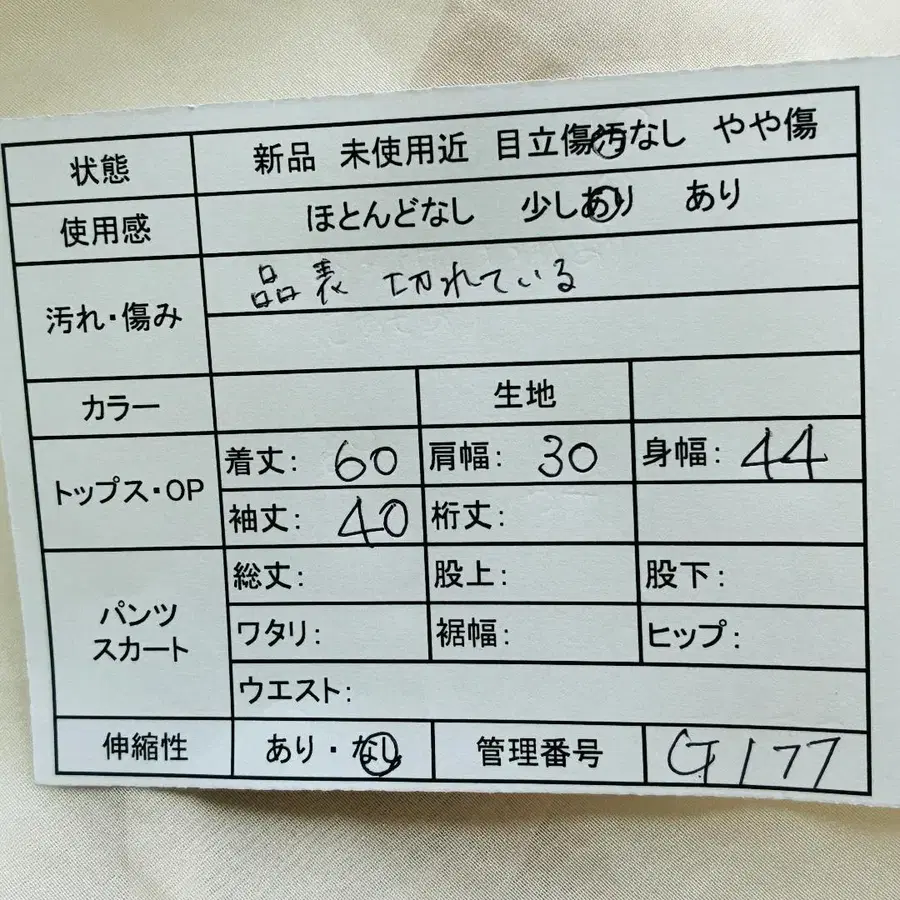 状態 新品 未使用近 目立傷汚なし やや傷
使用感 ほとんどなし 少しあり あり
汚れ・傷み 品表 切れている
カラー 生地
トップス・OP 着丈: 60 肩幅: 30 身幅: 44
袖丈: 40 裄丈:
パンツ スカート 総丈: 股上: 股下:
ワタリ: 裾幅: ヒップ:
ウエスト:
伸縮性 あり・なし 管理番号 G177